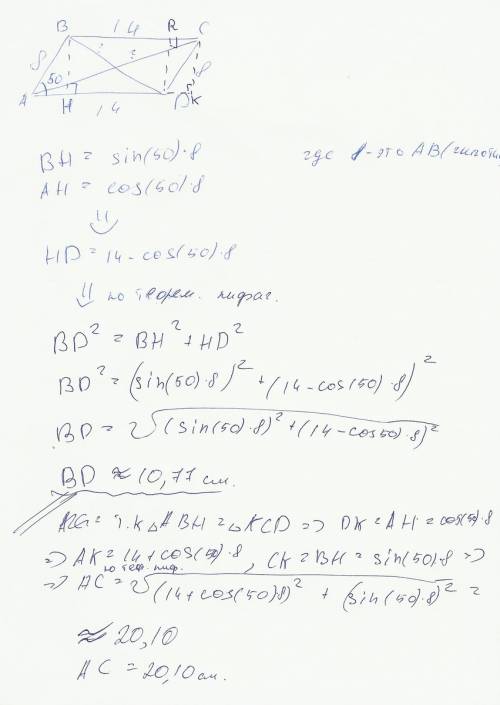 B 14 R C
8 ? ? 8
50
A H 14 D K
BH = sin(50)·8 где 8-это AB
AH = cos(50)·8
⇓
HD = 14 - cos(50)·8
⇓ по теорем. пифаг.
BD² = BH² + HD²
BD² = (sin(50)·8)² + (14 - cos(50)·8)²
BD = √(sin(50)·8)² + (14 - cos50)·8)²
BD ≈ 10,77 см.
т.к △ABH = △KCD => DK = AH = cos(50)·8
=> AK = 14 + cos(50)·8, CK = BH = sin(50)·8 =>
по теор. пиф.
=> AC = √(14 + cos(50)8)² + (sin(50)·8)² =
≈ 20,10
AC = 20,10 см.